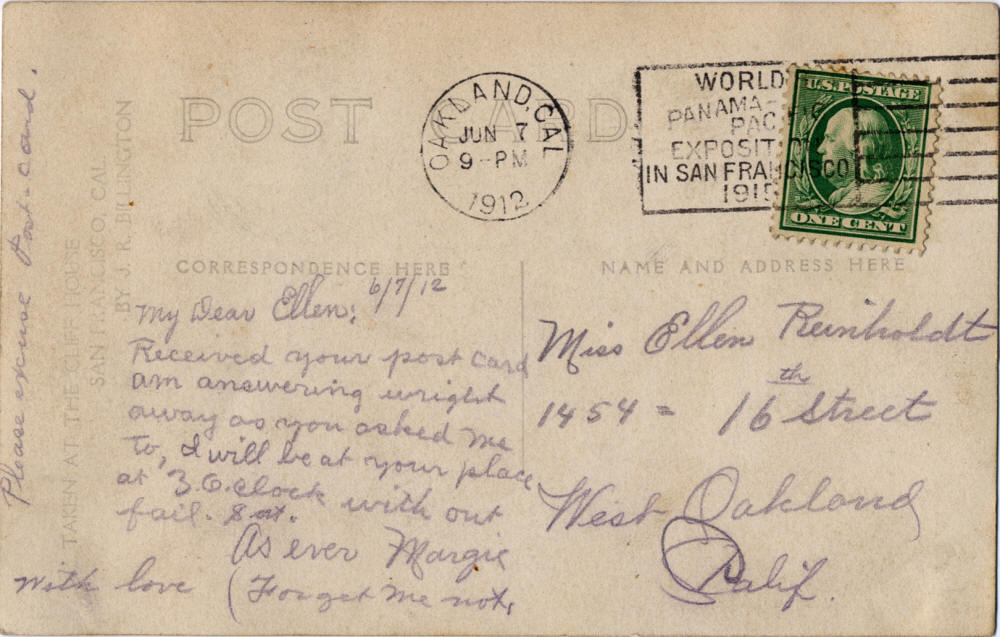 POST CARD
OAKLAND, CAL.
JUN 7
9-PM
1912
WORLD
PANAMA-
PACIFIC
EXPOSITION
IN SAN FRANCISCO
1915
U.S. POSTAGE
ONE CENT
CORRESPONDENCE HERE
NAME AND ADDRESS HERE
TAKEN AT THE CLIFF HOUSE
SAN FRANCISCO, CAL.
BY J. R. BILLINGTON
Please excuse Post-card.
6/7/12
My Dear Ellen:
Received your post card
am answering wright
away as you asked me
to, I will be at your place
at 3.O.clock with out
fail. Sat.
As ever Margie
With love (Forget me not,
Miss Ellen Reinholdt
1454 = 16th Street
West Oakland
Calif.